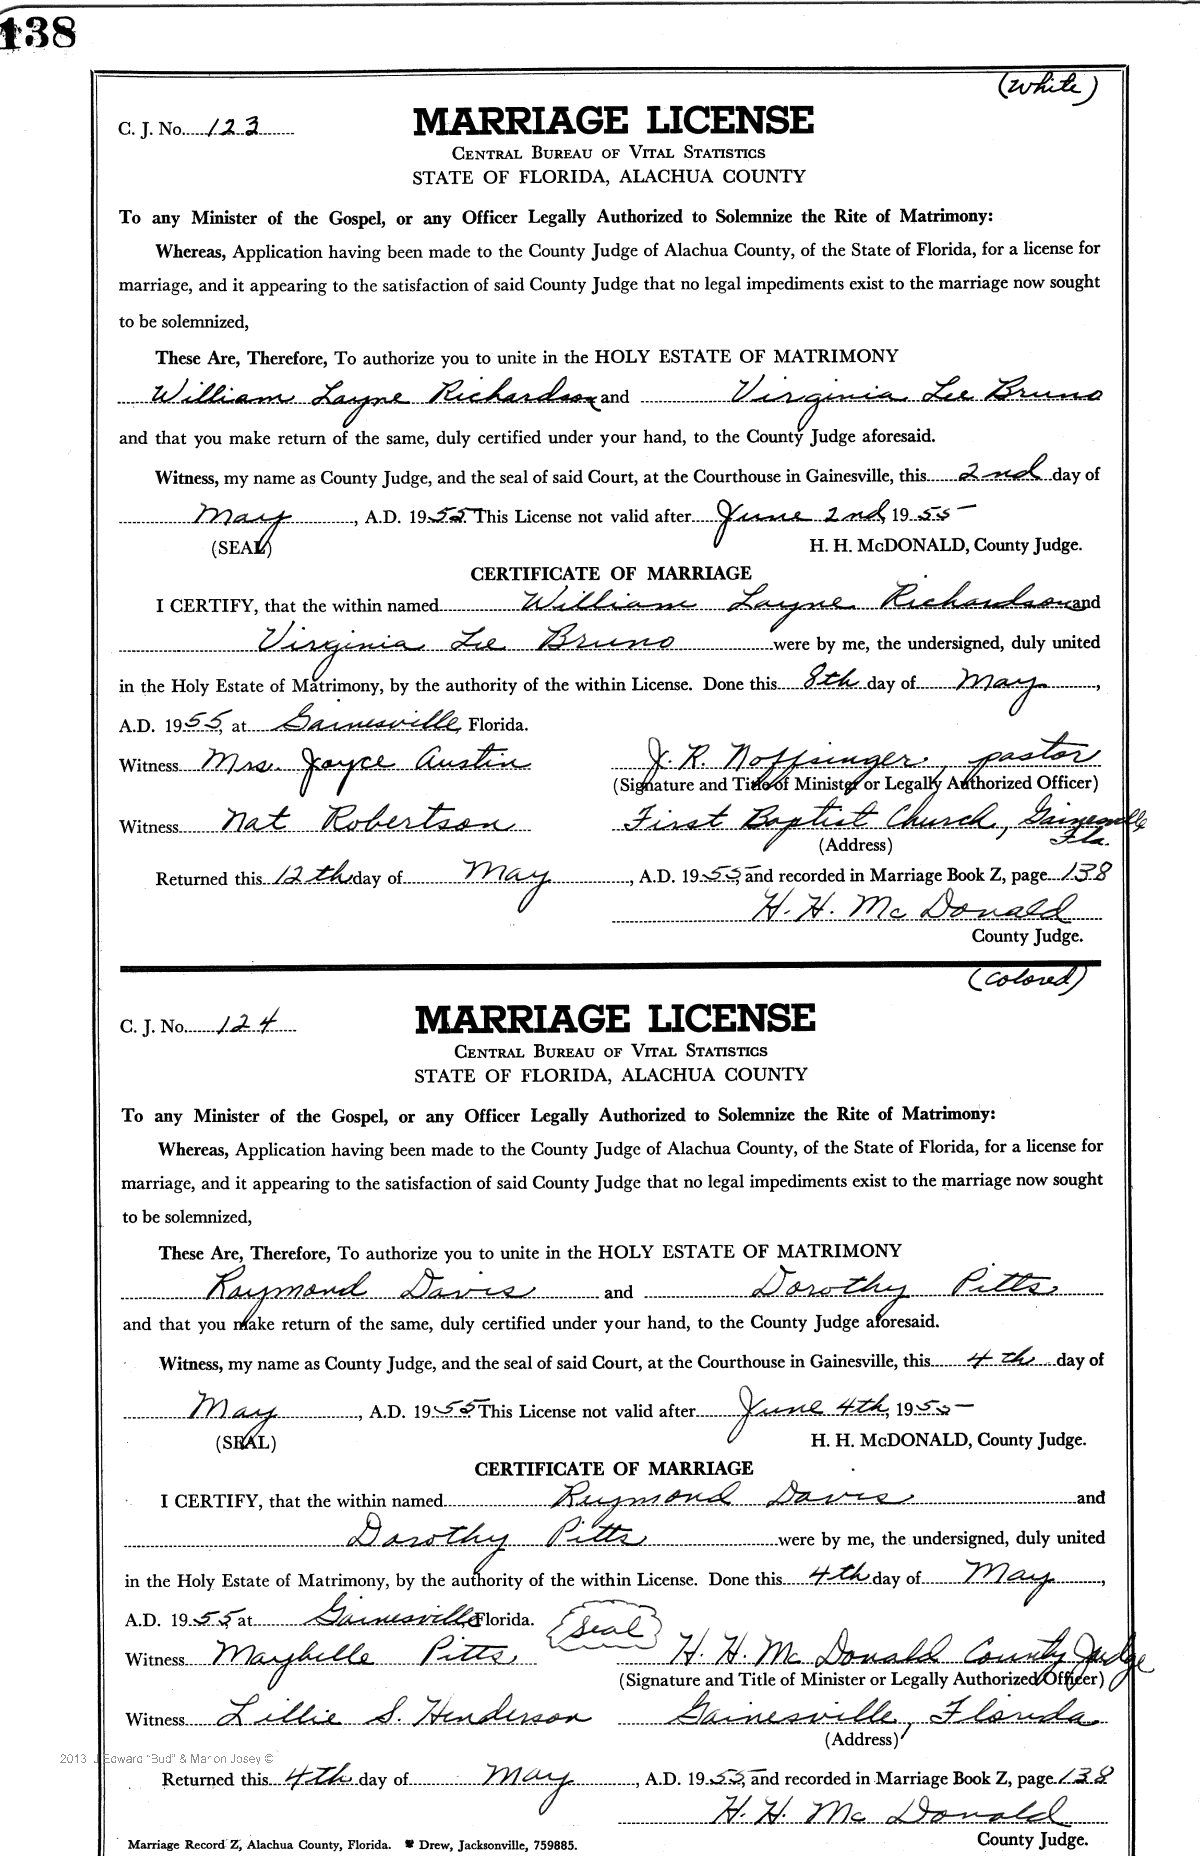 138
(White)
C. J. No. 123
MARRIAGE LICENSE
CENTRAL BUREAU OF VITAL STATISTICS
STATE OF FLORIDA, ALACHUA COUNTY
To any Minister of the Gospel, or any Officer Legally Authorized to Solemnize the Rite of Matrimony:
Whereas, Application having been made to the County Judge of Alachua County, of the State of Florida, for a license for
marriage, and it appearing to the satisfaction of said County Judge that no legal impediments exist to the marriage now sought
to be solemnized,
These Are, Therefore, To authorize you to unite in the HOLY ESTATE OF MATRIMONY
William Layne Richardson and Virginia Lee Bruno
and that you make return of the same, duly certified under your hand, to the County Judge aforesaid.
Witness, my name as County Judge, and the seal of said Court, at the Courthouse in Gainesville, this 2nd day of
May, A.D. 1955. This License not valid after June 2nd, 1955
(SEAL) H. H. McDONALD, County Judge.
CERTIFICATE OF MARRIAGE
I CERTIFY, that the within named William Layne Richardson and
Virginia Lee Bruno were by me, the undersigned, duly united
in the Holy Estate of Matrimony, by the authority of the within License. Done this 8th day of May,
A.D. 1955, at Gainesville, Florida.
Witness Mrs. Joyce Austin J. R. Noffsinger, pastor
(Signature and Title of Minister or Legally Authorized Officer)
Witness Nat Robertson First Baptist Church, Gainesville
Fla.
(Address)
Returned this 12th day of May, A.D. 1955, and recorded in Marriage Book Z, page 138
H. H. McDonald
County Judge.
(Colored)
C. J. No. 124
MARRIAGE LICENSE
CENTRAL BUREAU OF VITAL STATISTICS
STATE OF FLORIDA, ALACHUA COUNTY
To any Minister of the Gospel, or any Officer Legally Authorized to Solemnize the Rite of Matrimony:
Whereas, Application having been made to the County Judge of Alachua County, of the State of Florida, for a license for
marriage, and it appearing to the satisfaction of said County Judge that no legal impediments exist to the marriage now sought
to be solemnized,
These Are, Therefore, To authorize you to unite in the HOLY ESTATE OF MATRIMONY
Raymond Davis and Dorothy Pitts
and that you make return of the same, duly certified under your hand, to the County Judge aforesaid.
Witness, my name as County Judge, and the seal of said Court, at the Courthouse in Gainesville, this 4th day of
May, A.D. 1955. This License not valid after June 4th, 1955
(SEAL) H. H. McDONALD, County Judge.
CERTIFICATE OF MARRIAGE
I CERTIFY, that the within named Raymond Davis and
Dorothy Pitts were by me, the undersigned, duly united
in the Holy Estate of Matrimony, by the authority of the within License. Done this 4th day of May,
A.D. 1955, at Gainesville, Florida. Seal
Witness Maybelle Pitts H. H. McDonald County Judge
(Signature and Title of Minister or Legally Authorized Officer)
Witness Lillie S. Henderson Gainesville, Florida
(Address)
2013 J Edward "Bud" & Marion Josey ©
Returned this 4th day of May, A.D. 1955, and recorded in Marriage Book Z, page 138
H. H. McDonald
Marriage Record Z, Alachua County, Florida. Drew, Jacksonville, 759885. County Judge.